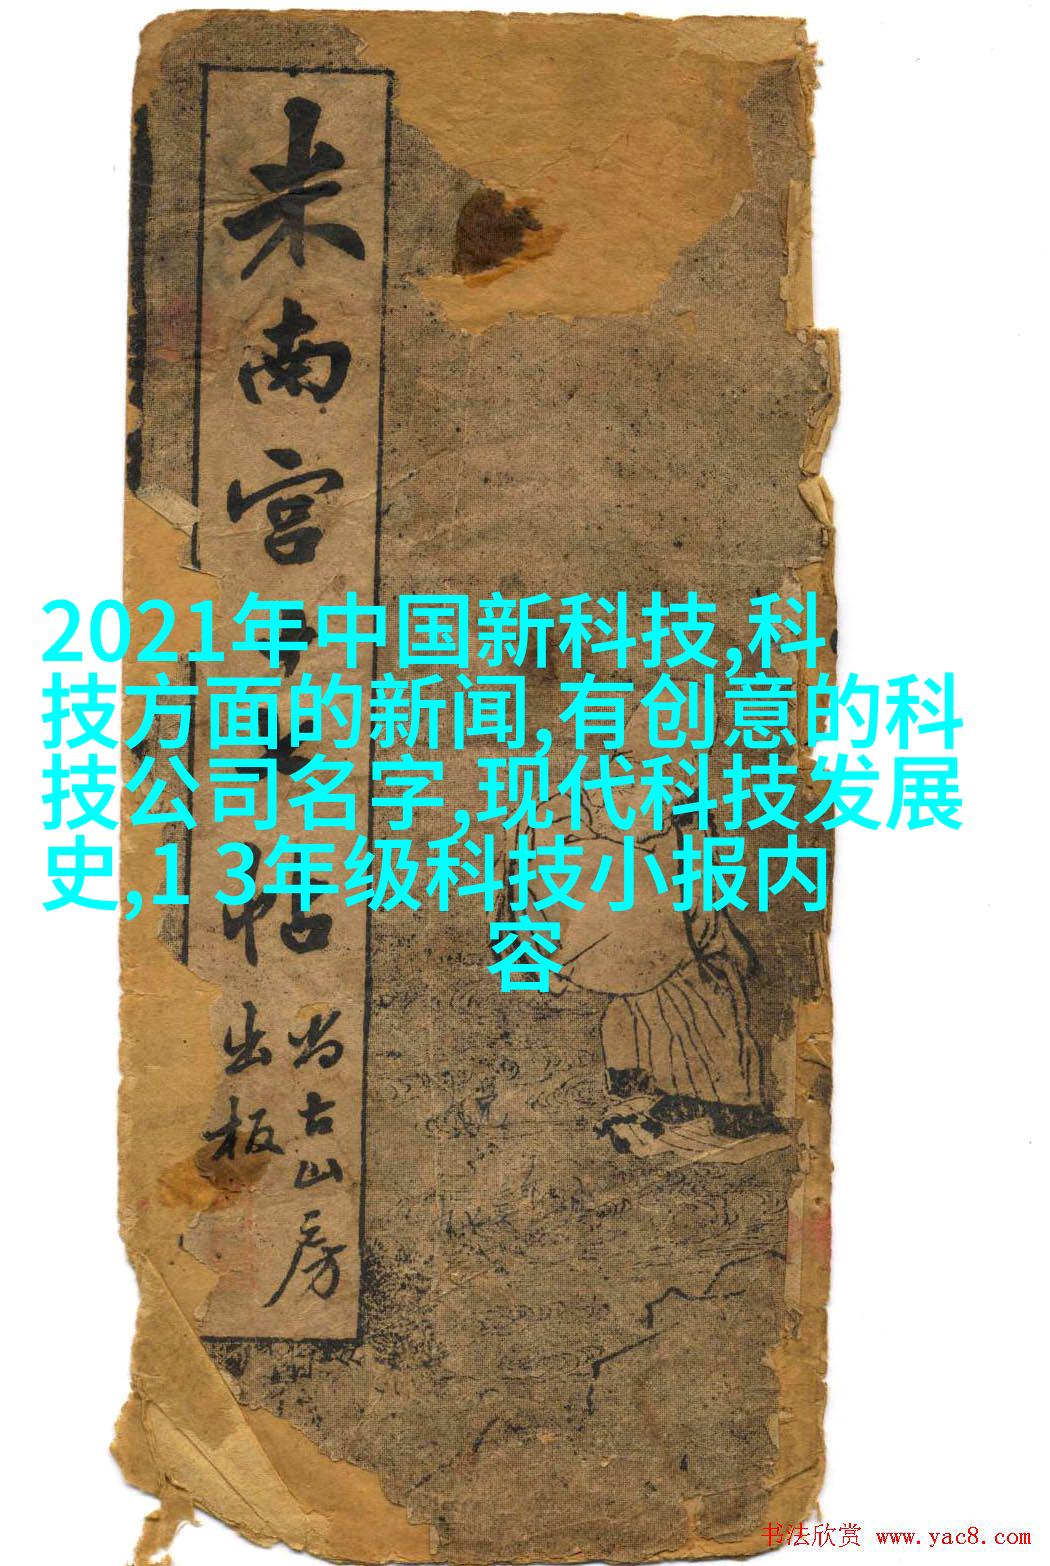 米南宫十七帖
尚古山房
出板
2021年中国新科技,科
技方面的新闻,有创意的科
技公司名字,现代科技发展
史,1 3年级科技小报内
容
书法欣赏 www.yac8.com